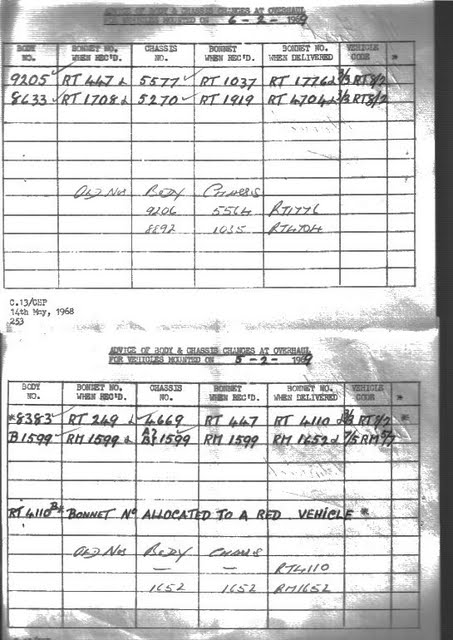 ADVICE OF BODY & CHASSIS CHANGES AT OVERHAUL
FOR VEHICLES MOUNTED ON 6-2-1969
BODY NO. BONNET NO. WHEN REC'D. CHASSIS NO. BONNET WHEN REC'D. BONNET NO. WHEN DELIVERED VEHICLE CODE *
9205 RT 447 5577 RT 1037 RT 1776 3/3 RT8/2
8633 RT 1708 5270 RT 1919 RT 4704 3/3 RT8/2
OLD NOS BODY CHASSIS
9206 5564 RT1776
8892 1035 RT4704
C.13/CHP
14th May, 1968
253
ADVICE OF BODY & CHASSIS CHANGES AT OVERHAUL
FOR VEHICLES MOUNTED ON 5-2-1969
BODY NO. BONNET NO. WHEN REC'D. CHASSIS NO. BONNET WHEN REC'D. BONNET NO. WHEN DELIVERED VEHICLE CODE *
*8383 RT 249 4669 RT 447 RT 4110 RT *
B1599 RM 1599 1599 RM 1599 RM 1652 7/5 RM 5/7
RT 4110 BONNET NO ALLOCATED TO A RED VEHICLE *
OLD NOS BODY CHASSIS
— — RT4110
1652 1652 RM1652